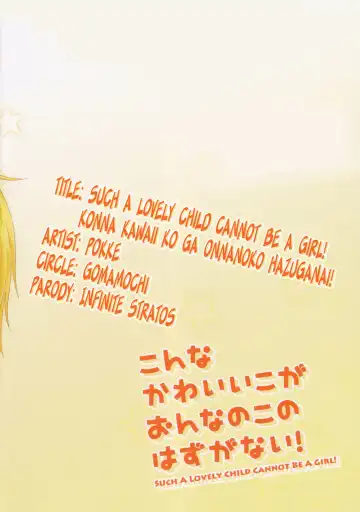 TITLE: SUCH A LOVELY CHILD CANNOT BE A GIRL!
KONNA KAWAII KO GA ONNANOKO HAZUGANAI!
ARTIST: POKKE
CIRCLE: GOMAMOCHI
PARODY: INFINITE STRATOS
こんな
かわいいこが
おんなのこの
はずがない!
SUCH A LOVELY CHILD CANNOT BE A GIRL!